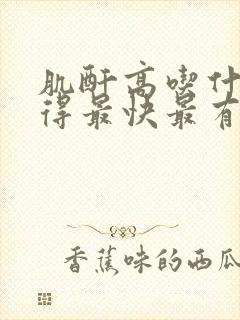 肌酐高喫什
得最快最有
香蕉味的西瓜